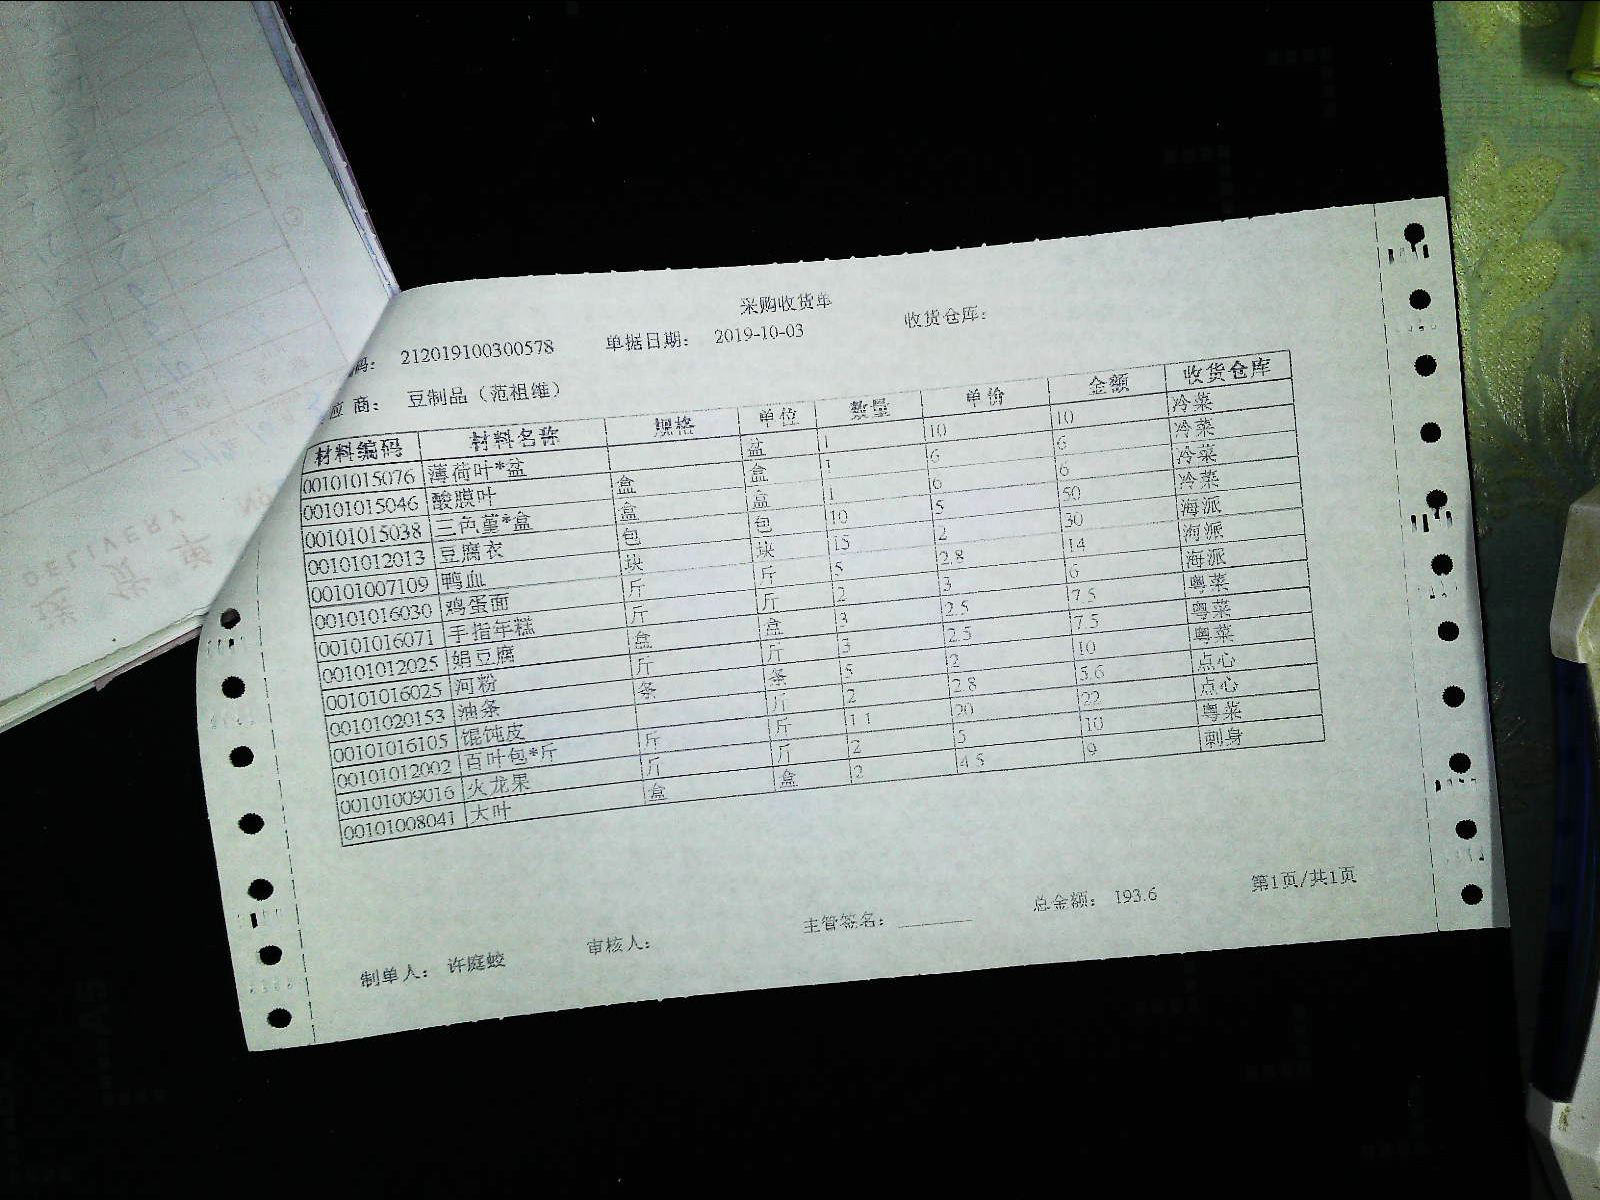 采购收货单
码: 212019100300578 单据日期: 2019-10-03 收货仓库:
应 商: 豆制品（范祖维）
材料编码 材料名称 规格 单位 数量 单价 金额 收货仓库
00101015076 薄荷叶*盆 盆 1 10 10 冷菜
00101015046 酸膜叶 盒 盒 1 6 6 冷菜
00101015038 三色堇*盒 盒 盒 1 6 6 冷菜
00101012013 豆腐衣 包 包 10 5 50 冷菜
00101007109 鸭血 块 块 15 2 30 海派
00101016030 鸡蛋面 斤 斤 5 2.8 14 海派
00101016071 手指年糕 斤 斤 2 3 6 海派
00101012025 娟豆腐 盒 盒 3 2.5 7.5 粤菜
00101016025 河粉 斤 斤 3 2.5 7.5 粤菜
00101020153 油条 条 条 5 2 10 粤菜
00101016105 馄饨皮 斤 2 2.8 5.6 点心
00101012002 百叶包*斤 斤 斤 1.1 20 22 点心
00101009016 火龙果 斤 斤 2 5 10 粤菜
00101008041 大叶 盒 盒 2 4.5 9 刺身
制单人: 许庭蛟 审核人: 主管签名: 总金额: 193.6 第1页/共1页
DELIVERY